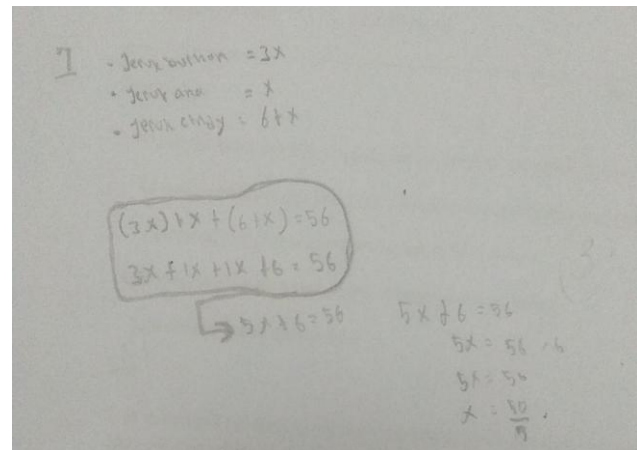 7
• Jeruk = 3x
• Jeruk ana = x
• Jeruk = 6+x
(3x)+x+(6+x)=56
3x+1x+1x+6=56
5x+6=56
5x+6=56
5x=56-6
5x=50
x=50/5.